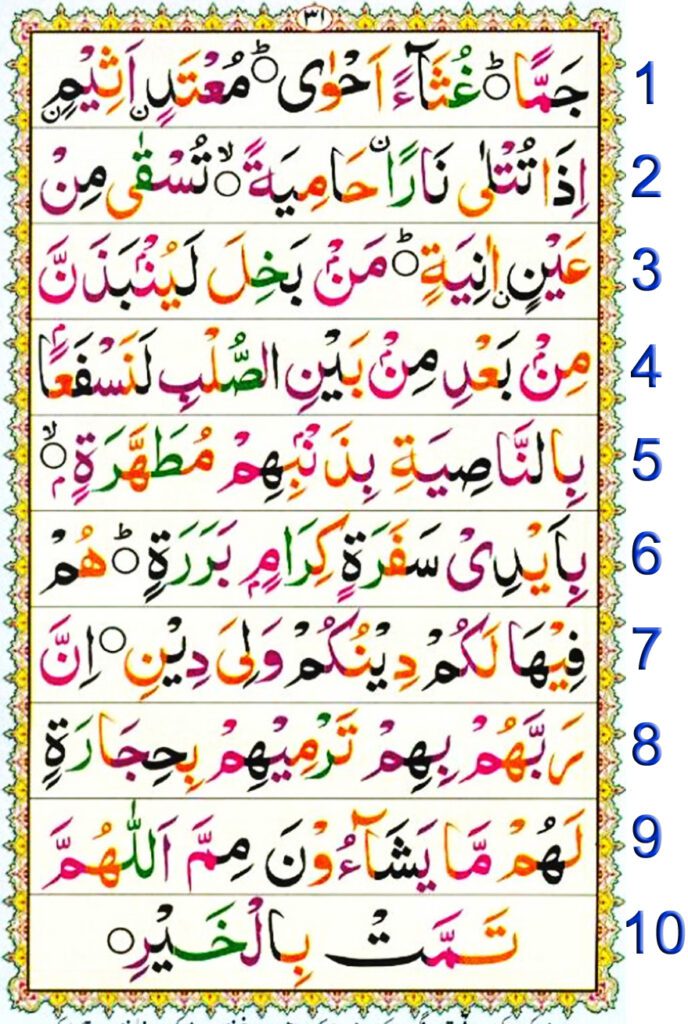 ٣١
جَمًّا ۝ؕ غُثَآءً اَحْوٰى ۝ؕ مُعْتَدٍ اَثِيْمٍ 1
اِذَا تُتْلٰى نَارًا حَامِيَةً ۝ۙ تُسْقٰى مِنْ 2
عَيْنٍ اٰنِيَةٍ ۝ؕ مَنْۢ بَخِلَ لَيُنْۢبَذَنَّ 3
مِنْۢ بَعْدِ مِنْۢ بَيْنِ الصُّلْبِ لَنَسْفَعًۢا 4
بِالنَّاصِيَةِ بِذَنْۢبِهِمْ مُطَهَّرَةٍۢ ۝ۙ 5
بِاَيْدِىْ سَفَرَةٍ كِرَامٍۢ بَرَرَةٍ ۝ؕ هُمْ 6
فِيْهَا لَكُمْ دِيْنُكُمْ وَلِىَ دِيْنِ ۝ اِنَّ 7
رَبَّهُمْ بِهِمْ تَرْمِيْهِمْ بِحِجَارَةٍ 8
لَهُمْ مَّا يَشَآءُوْنَ مِمَّ اَللّٰهُمَّ 9
تَمَّتْ بِالْخَيْرِ ۝ 10